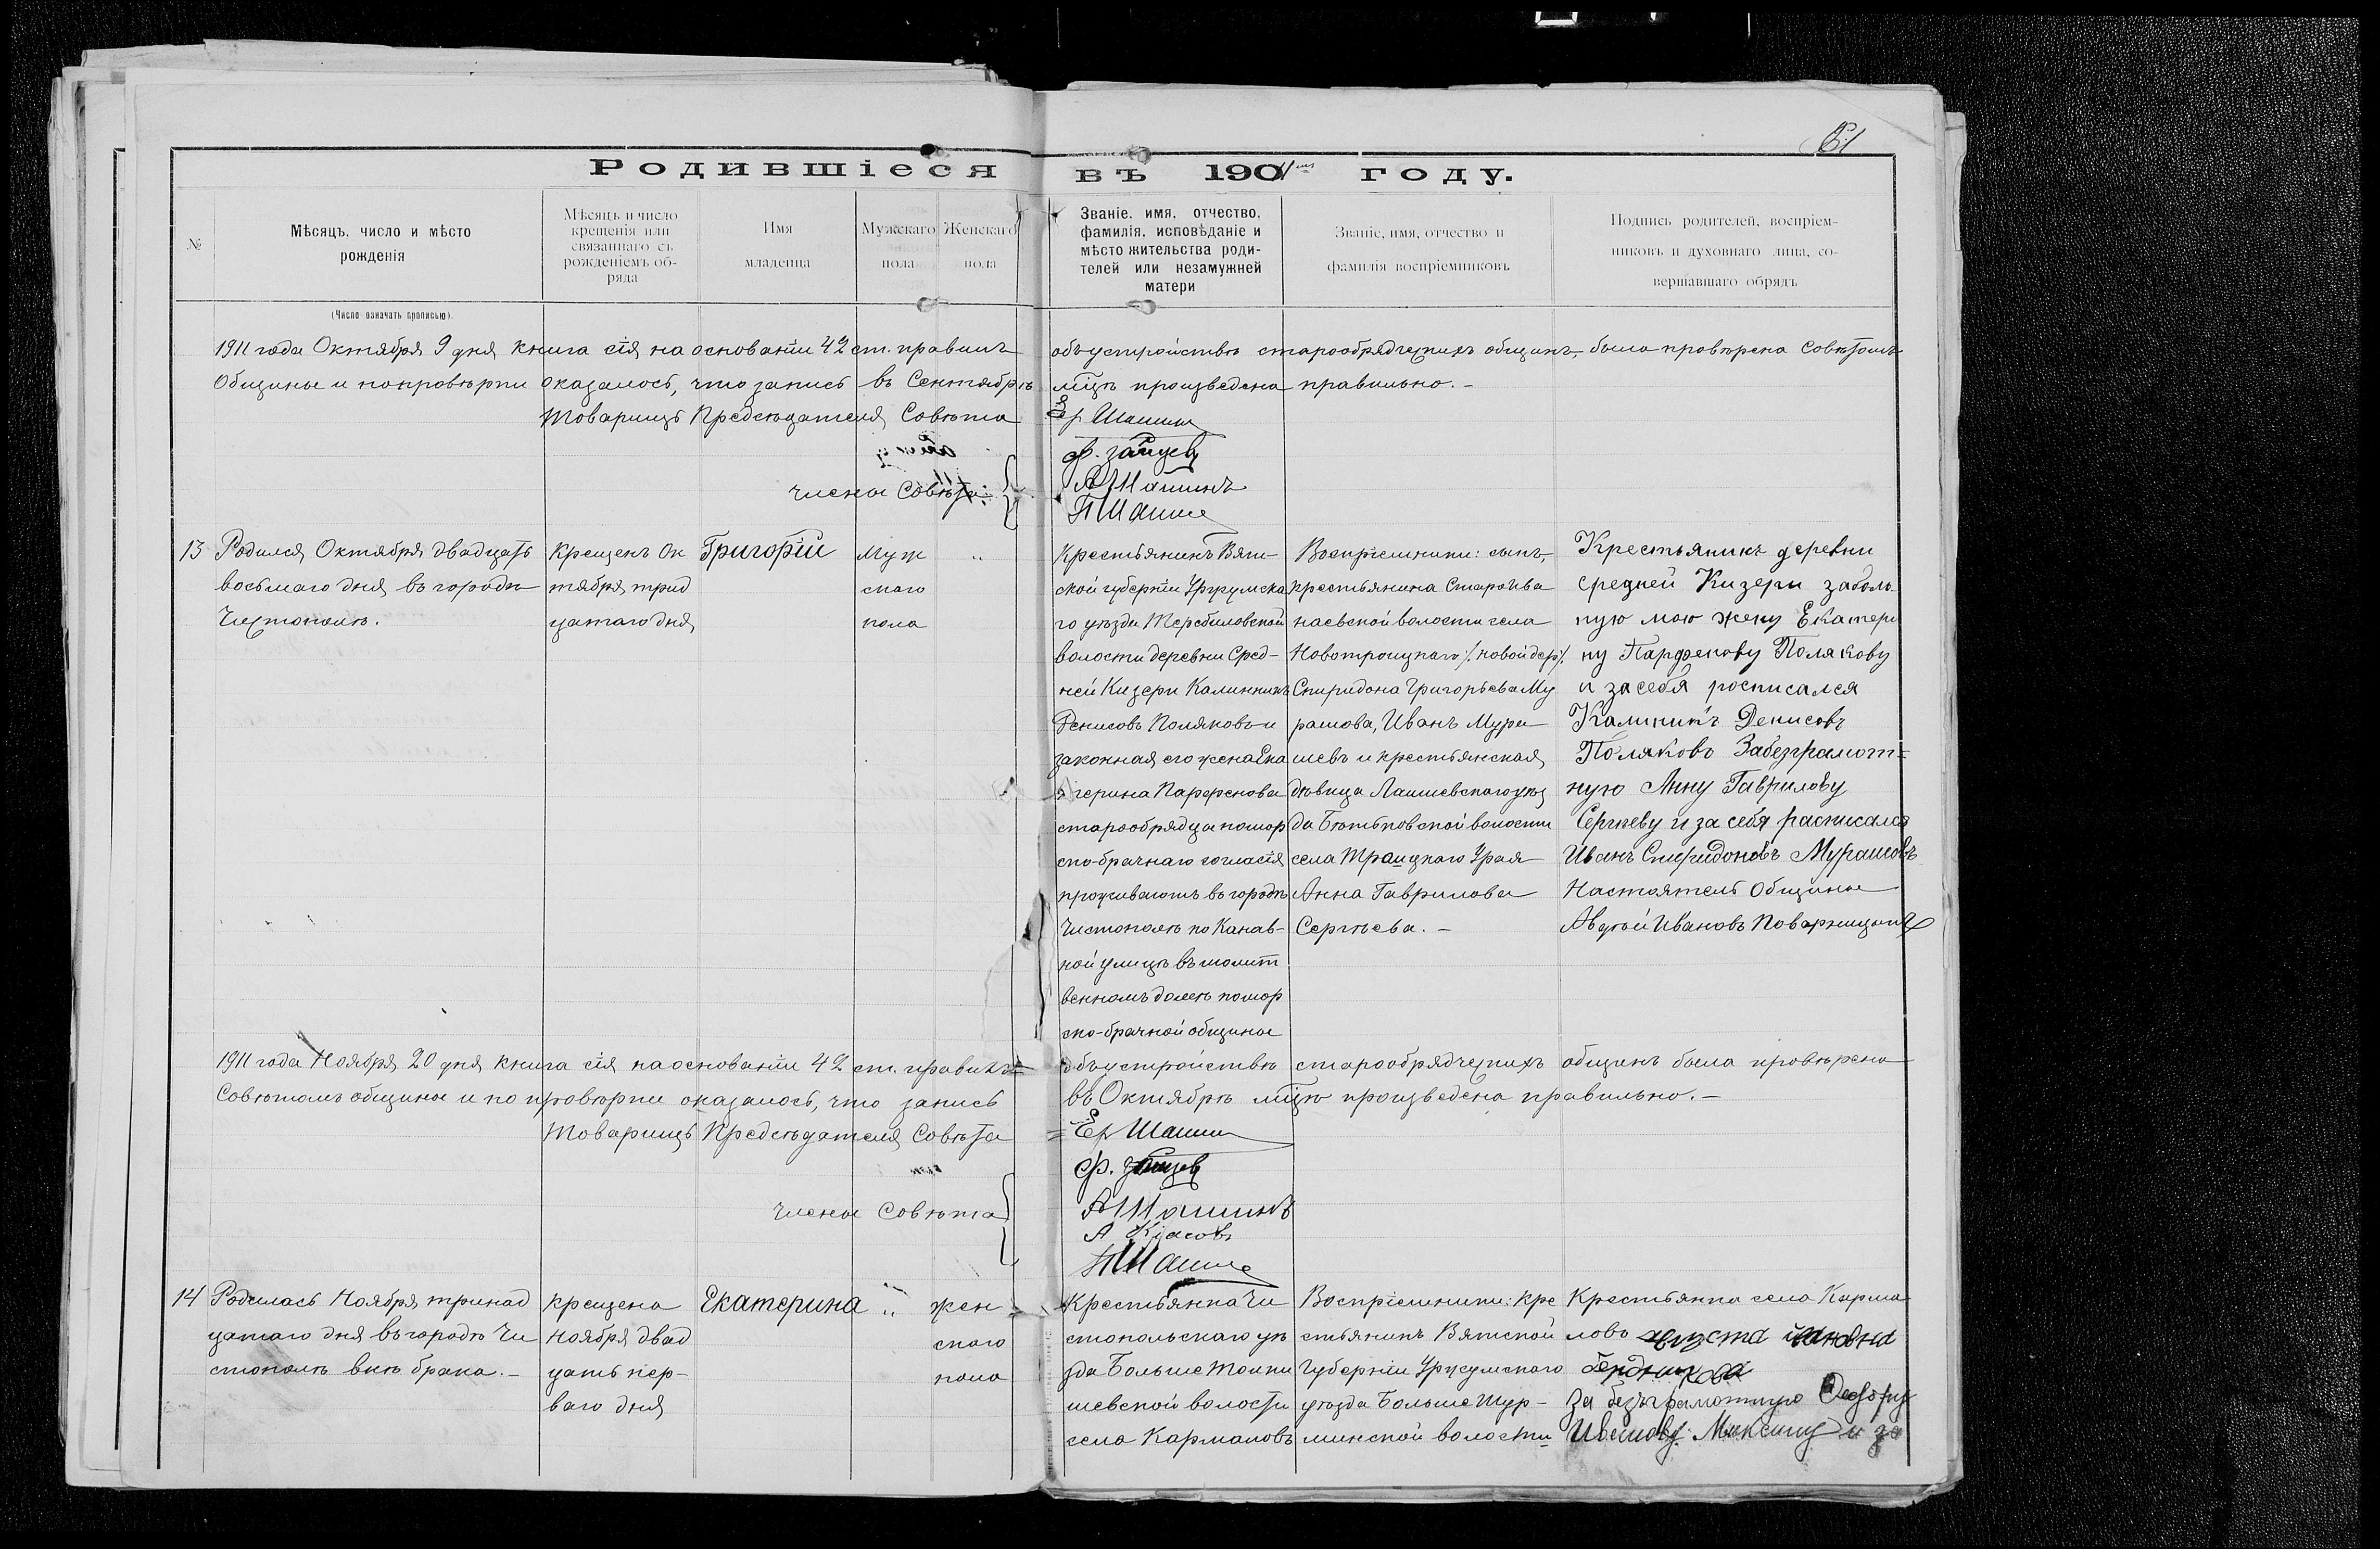 61
Родившіеся въ 1911 году.
№
Мѣсяцъ, число и мѣсто рожденія
Мѣсяцъ и число крещенія или связаннаго съ рожденіемъ обряда
Имя младенца
Мужскаго пола
Женскаго пола
Званіе, имя, отчество, фамилія, исповѣданіе и мѣсто жительства родителей или незамужней матери
Званіе, имя, отчество и фамилія воспріемниковъ
Подпись родителей, воспріемниковъ и духовнаго лица, совершавшаго обрядъ
(Число означать прописью).
1911 года Октября 9 дня книга сія на основаніи 42 ст. правилъ объ устройствѣ старообрядческихъ общинъ, была провѣрена Совѣтомъ
Общины и по провѣрки оказалось, что запись въ Сентябрѣ мцѣ произведена правильно.–
Товарищъ Предсѣдателя Совѣта Ер Шашин
Ф. Зайцевъ
члены Совѣта: АШашинъ
ПШашин
13
Родился Октября двадцать
восьмаго дня въ городѣ
Чистополѣ.
Крещенъ Ок
тября трид
цатаго дня
Григорій
Муж
скаго
пола
Крестьянинъ Вят-
ской губерніи Уржумска
го уѣзда Теребиловской
волости деревни Сред-
ней Кизери Калинникъ
Денисовъ Поляковъ и
законная его жена Ека
терина Парфенова
старообрядцы помор
ско-брачнаго согласія
проживаютъ въ городѣ
Чистополѣ по Канав-
ной улицѣ въ молит
венномъ домѣ помор
ско-брачной общины
Воспріемники: сынъ,
крестьянина Староива
наевской волости села
Новотроицкаго /:новой дер:/
Спиридона Григорьева Му
рашова, Иванъ Мура
шевъ и крестьянская
дѣвица Лаишевскаго уѣз
да волости
села Траицкаго Урая
Анна Гаврилова
Сергѣева.–
Крестьянинъ деревни
средней Кизери за боль
ную мою жену Екатери
ну Парфенову Полякову
и за себя росписался
Калинникъ Денисовъ
Поляковъ За безграмот=
ную Анну Гаврилову
Сергѣеву и за себя расписался
Иванъ Спиридоновъ Мурашовъ
Настоятель Общины
Авдѣй Ивановъ Поварницынъ
1911 года Ноября 20 дня книга сія на основаніи 42 ст. правилъ объ устройствѣ старообрядческихъ общинъ была провѣрена
Совѣтомъ общины и по провѣрки оказалось, что запись въ Октябрѣ мцѣ произведена правильно.–
Товарищъ Предсѣдателя Совѣта Ер Шашин
Ф. Зайцевъ
Члены Совѣта АШашинъ
ПШашин
14
Родилась Ноября тринад
цатаго дня въ городѣ Чи
стополѣ внѣ брака.–
крещена
Ноября двад
цать пер-
ваго дня
Екатерина
жен
скаго
пола
Крестьянка Чи
стопольскаго уѣ
зда Больше Толки
шевской волости
села Кармаловъ
Воспріемники: кре
стьянинъ Вятской
Губерніи Уржумскаго
уѣзда Больше Шур-
минской волости
Крестьянка села Карма
ловъ
за безъграмотную
Иванову и за